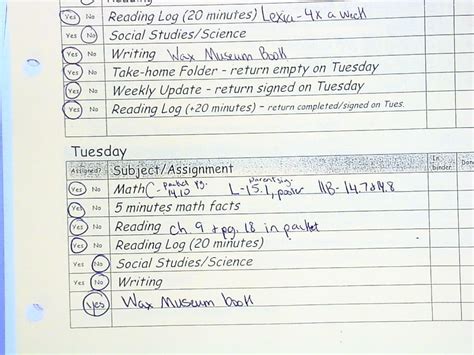 Reading
Yes No Reading Log (20 minutes) Lexia - 4x a week
Yes No Social Studies/Science
Yes No Writing Wax Museum Book
Yes No Take-home Folder - return empty on Tuesday
Yes No Weekly Update - return signed on Tuesday
Yes No Reading Log (+20 minutes) - return completed/signed on Tues.
Tuesday
Assigned? Subject/Assignment In binder
Yes No Math C- Packet pg. 14.10 L-15.1, Parent sig. MB-14.7 & 14.8
Yes No 5 minutes math facts
Yes No Reading ch 9 & pg. 18 in packet
Yes No Reading Log (20 minutes)
Yes No Social Studies/Science
Yes No Writing
yes Wax Museum book